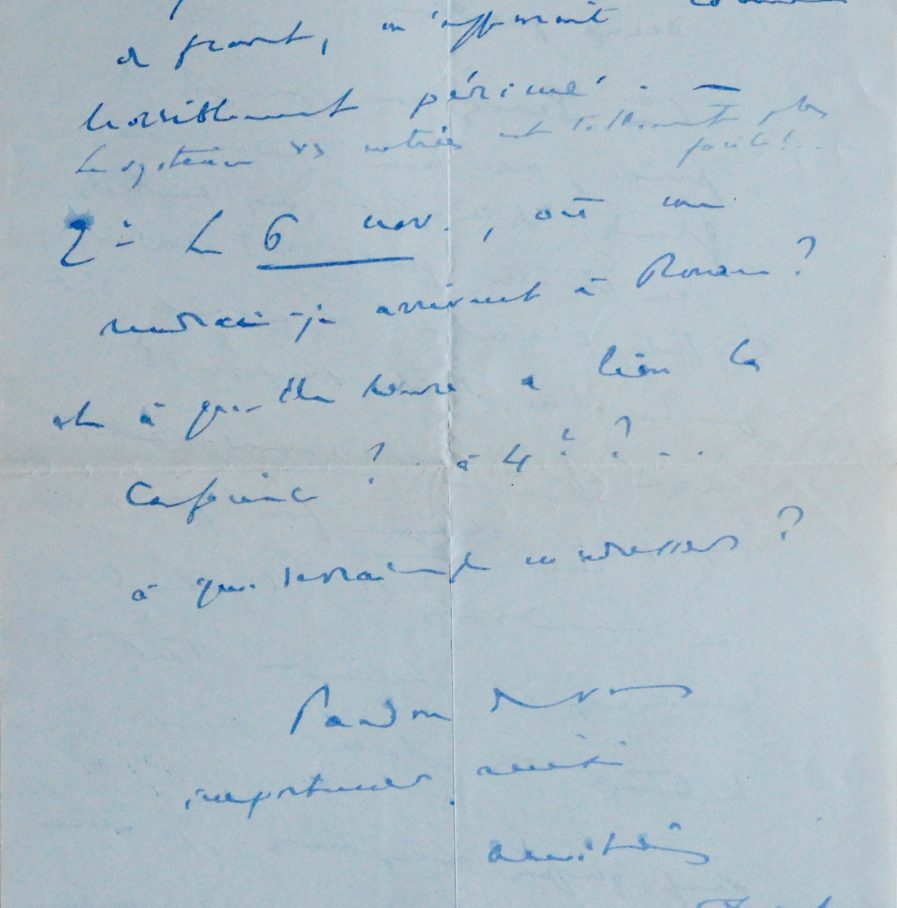 de front, m'apparaît comme
horriblement périmé. —
Le système est tellement plus
facile!...
2: Le 6 nov., où me
rendrai-je arrivant à Rouen?
et à quelle heure a lieu la
Conférence? à 4h?...
à qui devrai-je m'adresser?
Pardon de vous
importuner ainsi
amitiés